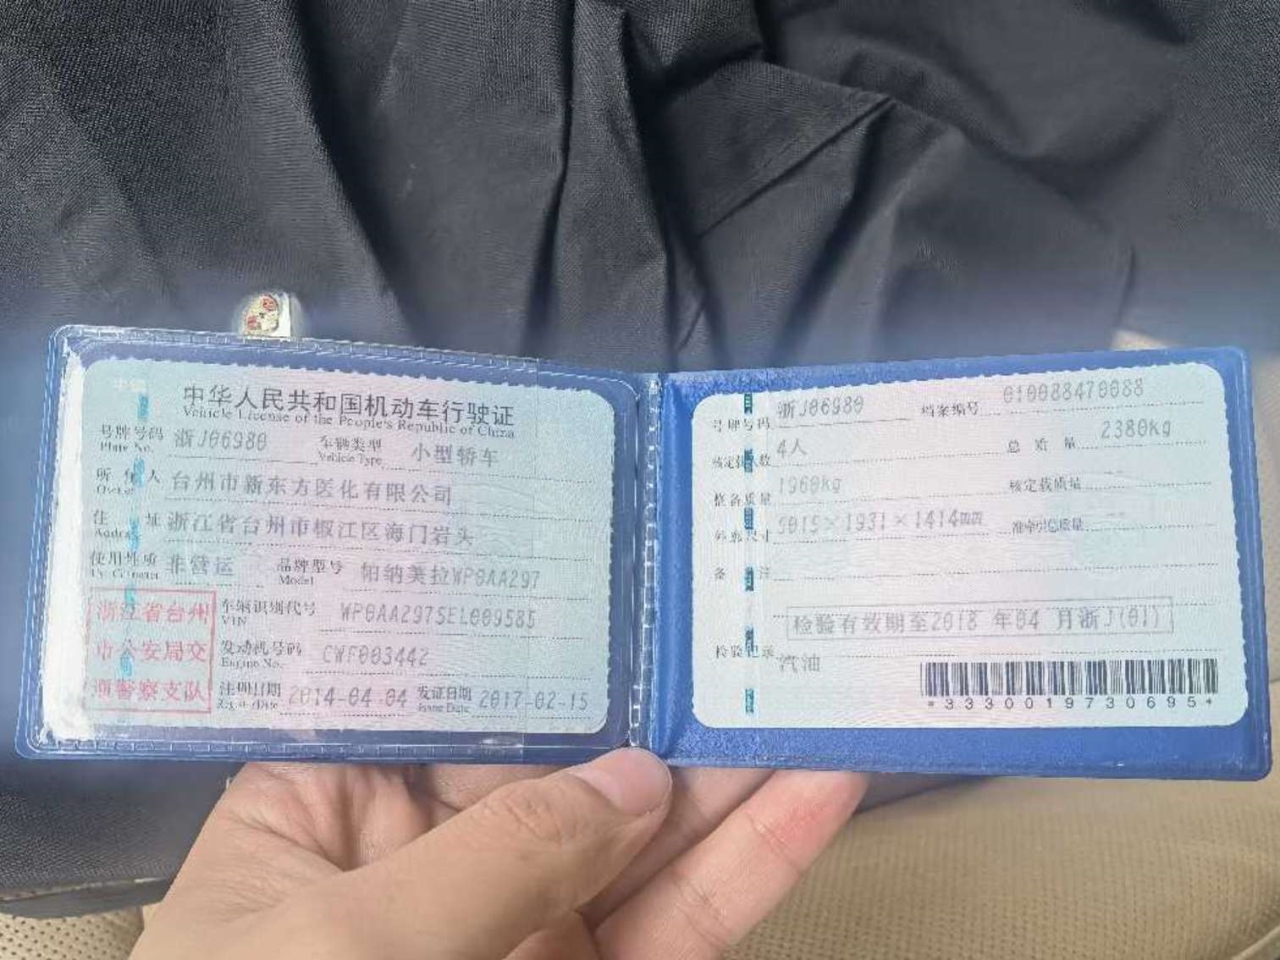 中华人民共和国机动车行驶证
Vehicle License of the People's Republic of China
号牌号码 浙J06980 车辆类型 小型轿车
Plate No. Vehicle Type
所有人 台州市新东方医化有限公司
Owner
住址 浙江省台州市椒江区海门岩头
Address
使用性质 非营运 品牌型号 帕纳美拉WP0AA297
Use Character Model
浙江省台州市公安局交通警察支队
车辆识别代号 WP0AA297SEL009585
VIN
发动机号码 CWF003442
Engine No.
注册日期 2014-04-04 发证日期 2017-02-15
Register Date Issue Date
号牌号码 浙J06980 档案编号 010088470088
核定载人数 4人 总质量 2380kg
整备质量 1960kg 核定载质量 --
外廓尺寸 5015×1931×1414mm 准牵引总质量 --
备注
检验有效期至2018年04月浙J(01)
检验记录
汽油
*3330019730695*